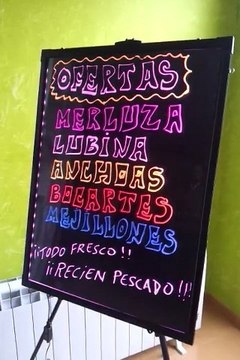 OFERTAS
MERLUZA
LUBINA
ANCHOAS
BOCARTES
MEJILLONES
¡¡TODO FRESCO!!
¡¡RECIEN PESCADO!!!